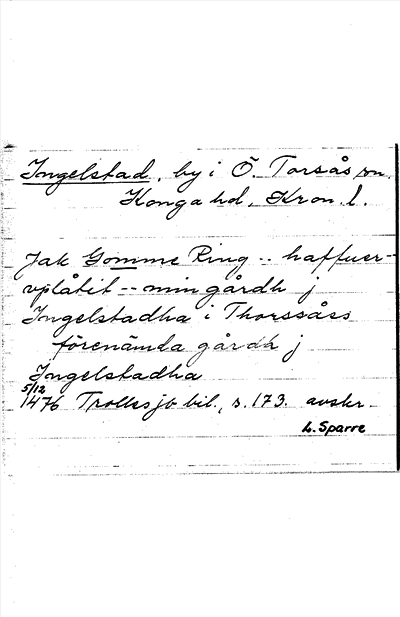 Ingelstad, by i Ö. Torsås sn.
Konga hd, Kron. l.
Jak Gomme Ring -- haffuer
vplåtit -- min gårdh j
Ingelstadha i Thorssåss
förenämda gårdh j
Ingelstadha
5/12
1476 Trollesjö bil., s. 173. avskr.
L. Sparre